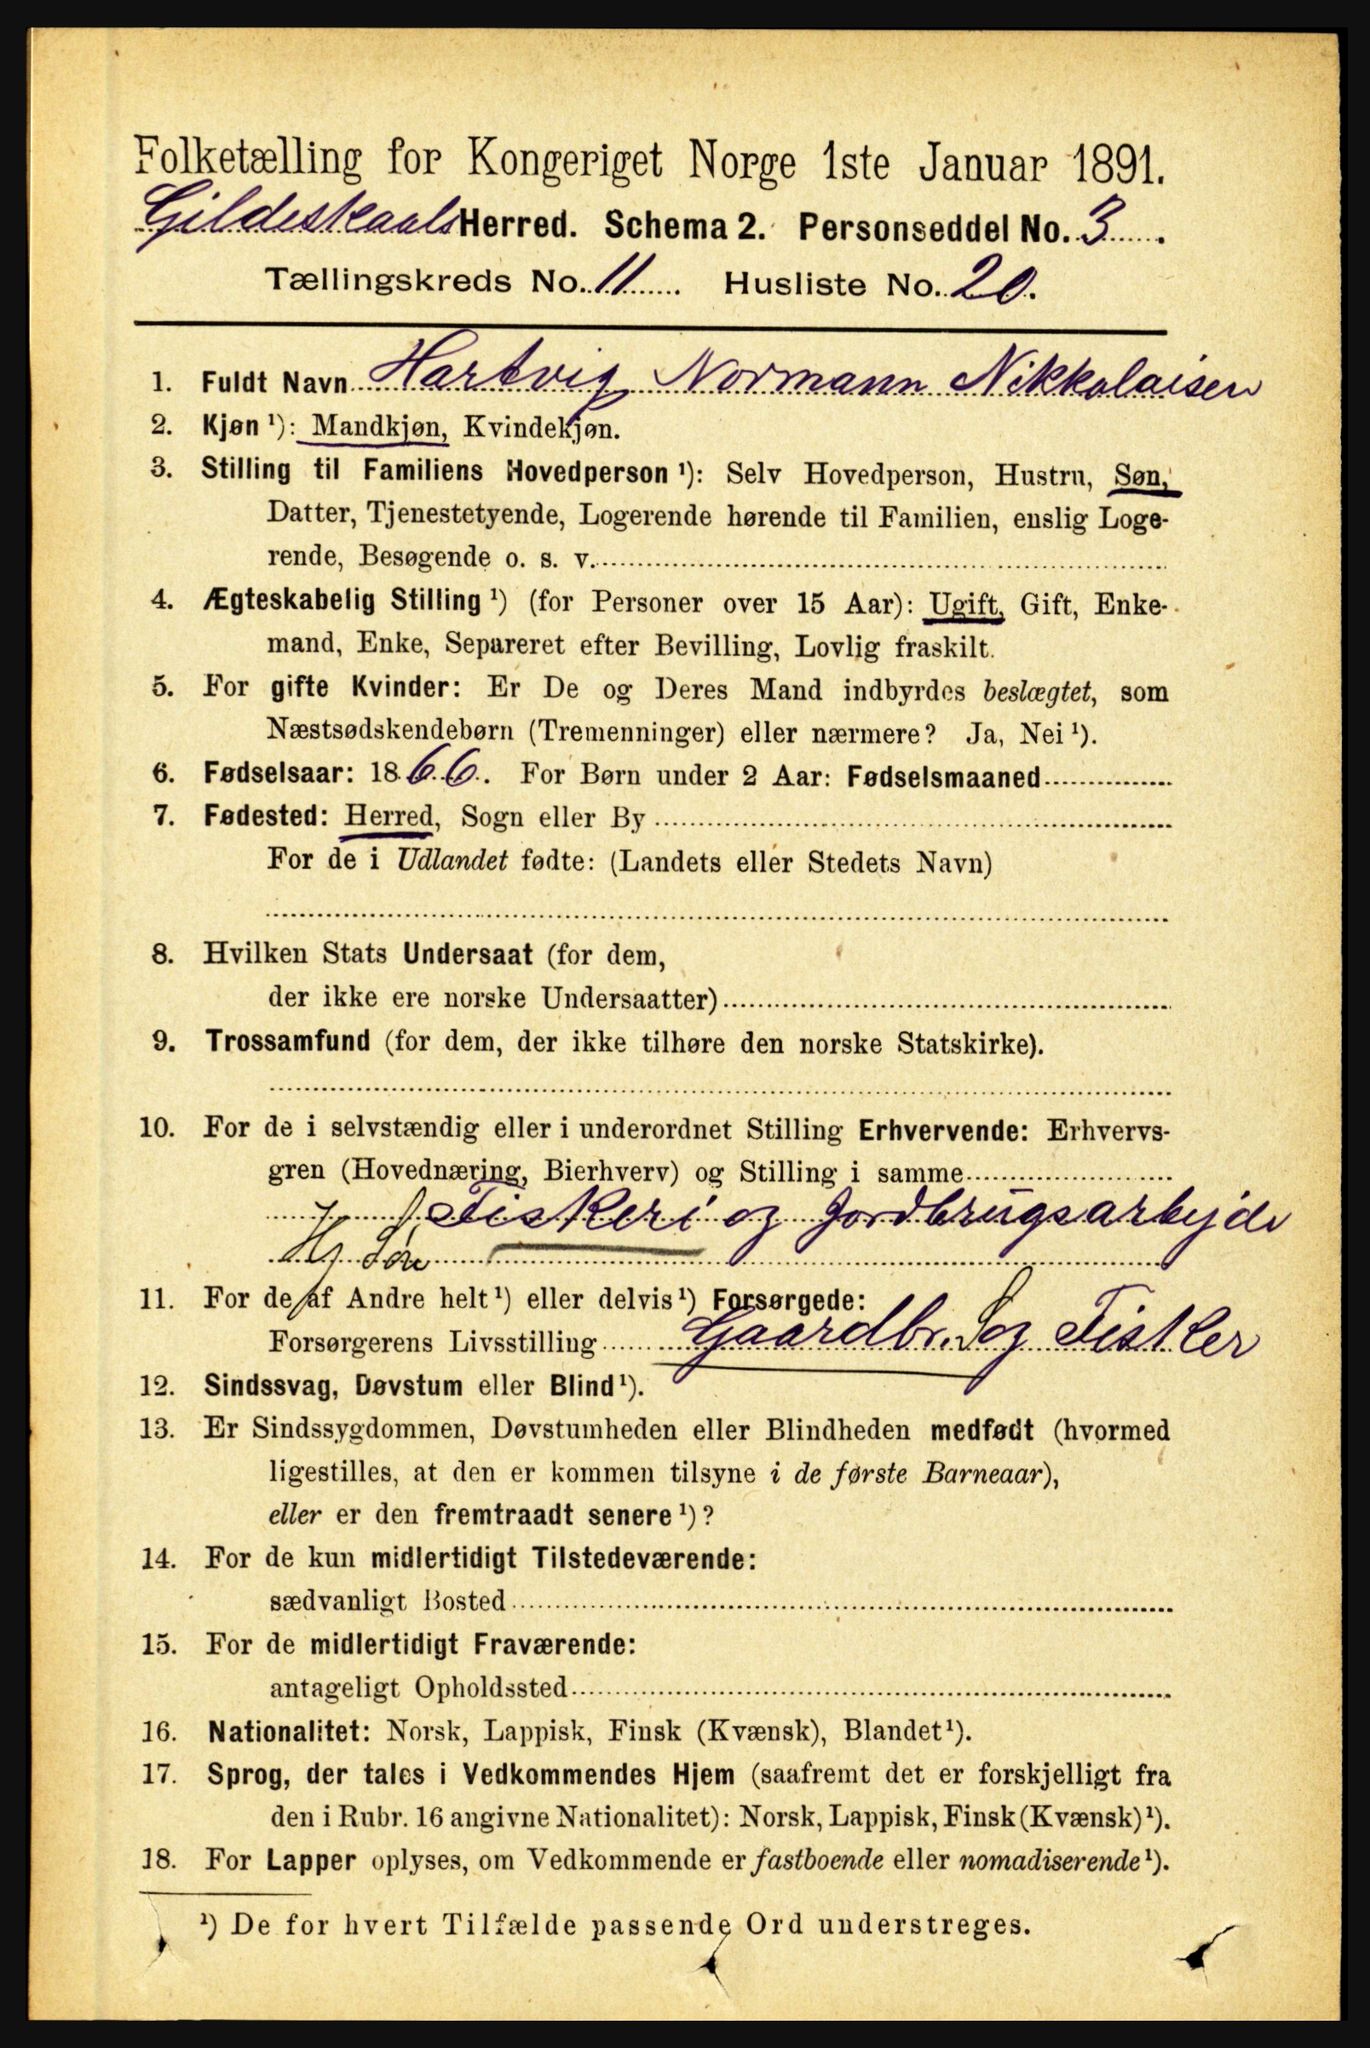 Folketælling for Kongeriget Norge 1ste Januar 1891.
Gildeskaals Herred. Schema 2. Personseddel No. 3.
Tællingskreds No. 11. Husliste No. 20.
1. Fuldt Navn Hartvig Normann Nikkolaisen
2. Kjøn ¹): Mandkjøn, Kvindekjøn.
3. Stilling til Familiens Hovedperson ¹): Selv Hovedperson, Hustru, Søn,
Datter, Tjenestetyende, Logerende hørende til Familien, enslig Loge-
rende, Besøgende o. s. v.
4. Ægteskabelig Stilling ¹) (for Personer over 15 Aar): Ugift, Gift, Enke-
mand, Enke, Separeret efter Bevilling, Lovlig fraskilt.
5. For gifte Kvinder: Er De og Deres Mand indbyrdes beslægtet, som
Næstsødskendebørn (Tremenninger) eller nærmere? Ja, Nei ¹).
6. Fødselsaar: 1866. For Børn under 2 Aar: Fødselsmaaned
7. Fødested: Herred, Sogn eller By
For de i Udlandet fødte: (Landets eller Stedets Navn)
8. Hvilken Stats Undersaat (for dem,
der ikke ere norske Undersaatter)
9. Trossamfund (for dem, der ikke tilhøre den norske Statskirke).
10. For de i selvstændig eller i underordnet Stilling Erhvervende: Erhvervs-
gren (Hovednæring, Bierhverv) og Stilling i samme
Fiskeri og Jordbrugsarbejde
Søn
11. For de af Andre helt ¹) eller delvis ¹) Forsørgede:
Forsørgerens Livsstilling Gaardbr. S og Fisker
12. Sindssvag, Døvstum eller Blind ¹).
13. Er Sindssygdommen, Døvstumheden eller Blindheden medfødt (hvormed
ligestilles, at den er kommen tilsyne i de første Barneaar),
eller er den fremtraadt senere ¹)?
14. For de kun midlertidigt Tilstedeværende:
sædvanligt Bosted
15. For de midlertidigt Fraværende:
antageligt Opholdssted
16. Nationalitet: Norsk, Lappisk, Finsk (Kvænsk), Blandet ¹).
17. Sprog, der tales i Vedkommendes Hjem (saafremt det er forskjelligt fra
den i Rubr. 16 angivne Nationalitet): Norsk, Lappisk, Finsk (Kvænsk) ¹).
18. For Lapper oplyses, om Vedkommende er fastboende eller nomadiserende ¹).
¹) De for hvert Tilfælde passende Ord understreges.